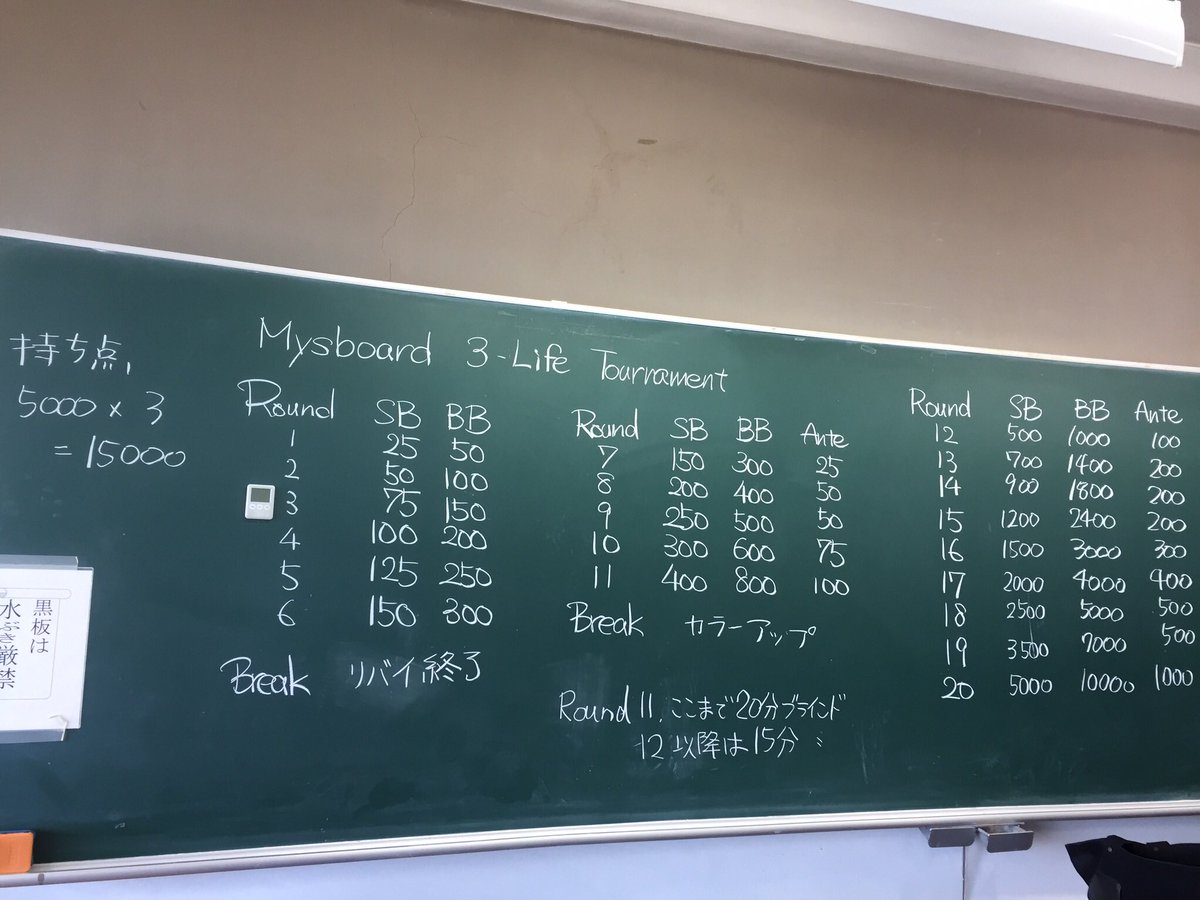 Mysboard 3-Life Tournament
持ち点
5000 × 3
= 15000
Round SB BB
1 25 50
2 50 100
3 75 150
4 100 200
5 125 250
6 150 300
Break リバイ終了
Round SB BB Ante
7 150 300 25
8 200 400 50
9 250 500 50
10 300 600 75
11 400 800 100
Break カラーアップ
Round 11, ここまで20分ブラインド
12 以降は15分 〃
Round SB BB Ante
12 500 1000 100
13 700 1400 200
14 900 1800 200
15 1200 2400 200
16 1500 3000 300
17 2000 4000 400
18 2500 5000 500
19 3500 7000 500
20 5000 10000 1000
黒板は
水ぶき厳禁